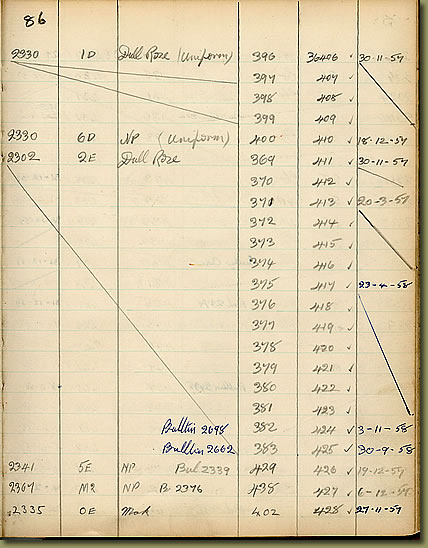 86
2330 1D Dull Roze (Uniform) 396 36406 ✓ 30-11-57
397 407 ✓
398 408 ✓
399 409 ✓
2330 6D NP (Uniform) 400 410 ✓ 18-12-57
2302 2E Dull Roze 369 411 ✓ 30-11-57
370 412 ✓
371 413 ✓ 20-3-57
372 414 ✓
373 415 ✓
374 416 ✓
375 417 ✓ 23-4-58
376 418 ✓
377 419 ✓
378 420 ✓
379 421 ✓
380 422 ✓
381 423 ✓
Bulltin 2698 382 424 ✓ 3-11-58
Bulltin 2662 383 425 ✓ 30-9-58
2341 5E NP Bul 2339 429 426 ✓ 19-12-57
2367 M2 NP B 2376 438 427 ✓ 6-12-57
2335 OE 402 428 ✓ 27-11-57